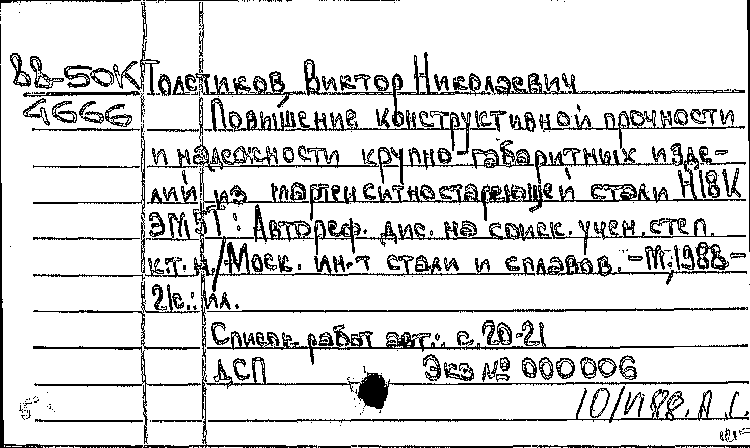 88-50К Толстиков, Виктор Николаевич
4666 Повышение конструктивной прочности
и надежности крупно-габаритных изде-
лий из мартенситностареющей стали Н18К
9М5Т: Автореф. дис. на соиск. учен. степ.
к.т.н./Моск. ин-т стали и сплавов. -М.,1988-
21с.: ил.
Список работ авт.: с.20-21
ДСП Экз № 000006